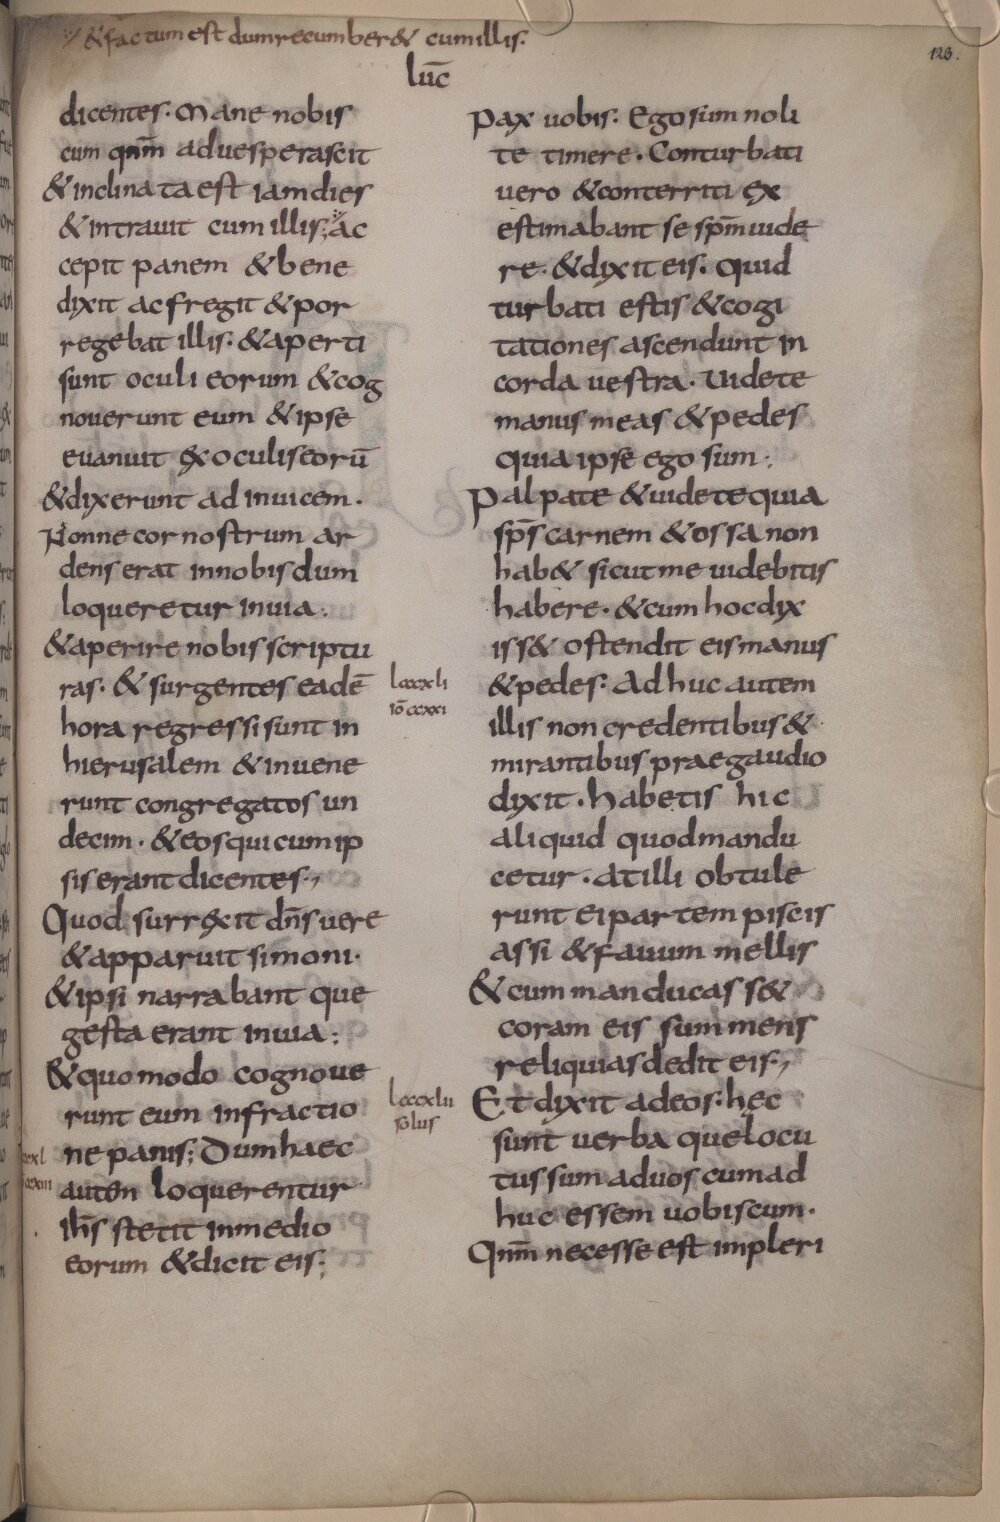 & factum est dum recumber& cum illis.
123.
luc̄
dicentes. Mane nobis
cum qnm̄ aduesperascit
& inclinata est iam dies
& intrauit cum illis; Ac
cepit panem & bene
dixit ac fregit & por
regebat illis. & aperti
sunt oculi eorum & cog
nouerunt eum & ipse
euanuit ex oculis eorū
& dixerunt ad inuicem.
Nonne cor nostrum ar
dens erat in nobis dum
loqueretur in uia.
& aperire nobis scriptu
ras. & surgentes eadē
hora regressi sunt in
hierusalem & inuene
runt congregatos un
decim. & eos qui cum ip
sis erant dicentes.,
Quod surrexit dn̄s uere
& apparuit simoni.
& ipsi narrabant que
gesta erant in uia:
& quomodo cognoue
runt eum in fractio
ne panis; Dum haec
autem loquerentur
ih̄s stetit in medio
eorum & dicit eis;
lcccxli
iō ccxxi
lcccxlii
solus
Pax uobis. Ego sum noli
te timere. Conturbati
uero & conterriti ex
estimabant se spm̄ uide
re. & dixit eis. Quid
turbati estis & cogi
tationes ascendunt in
corda uestra. Uidete
manus meas & pedes
quia ipse ego sum.
Palpate & uidete quia
sps̄ carnem & ossa non
hab& sicut me uidebitis
habere. & cum hoc dix
iss& ostendit eis manus
& pedes. Adhuc autem
illis non credentibus &
mirantibus prae gaudio
dixit. habetis hic
aliquid quod mandu
cetur. at illi obtule
runt ei partem piscis
assi & fauum mellis
& cum manducass&
coram eis summens
reliquias dedit eis.,
Et dixit ad eos. hęc
sunt uerba que locu
tus sum ad uos cum ad
huc essem uobiscum.
Qnm̄ necesse est impleri